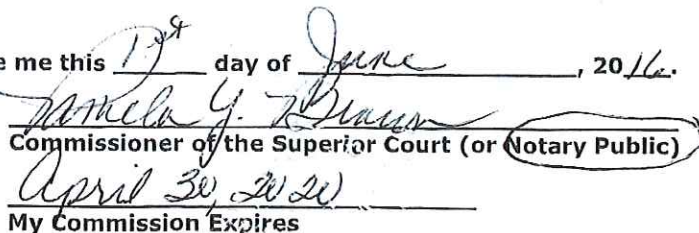 e me this 1st day of June, 2016.
Pamela Y.
Commissioner of the Superior Court (or Notary Public)
April 30, 2020
My Commission Expires